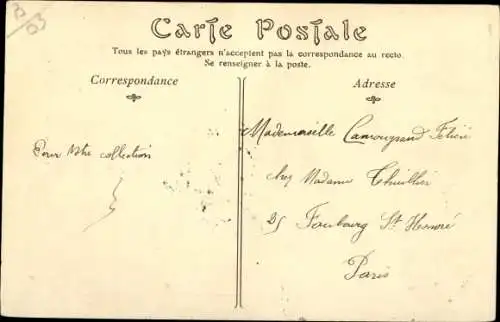 Carte Postale
Tous les pays étrangers n'acceptent pas la correspondance au recto.
Se renseigner à la poste.
Correspondance
Adresse
Pour votre collection
Mademoiselle
chez Madame Thuillier
25 Faubourg St Honoré
Paris